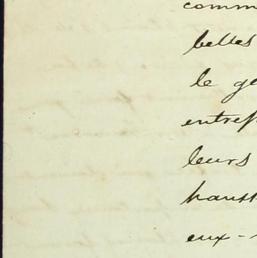 comm
belles
le ge
entrep
leurs
hauss
eux-